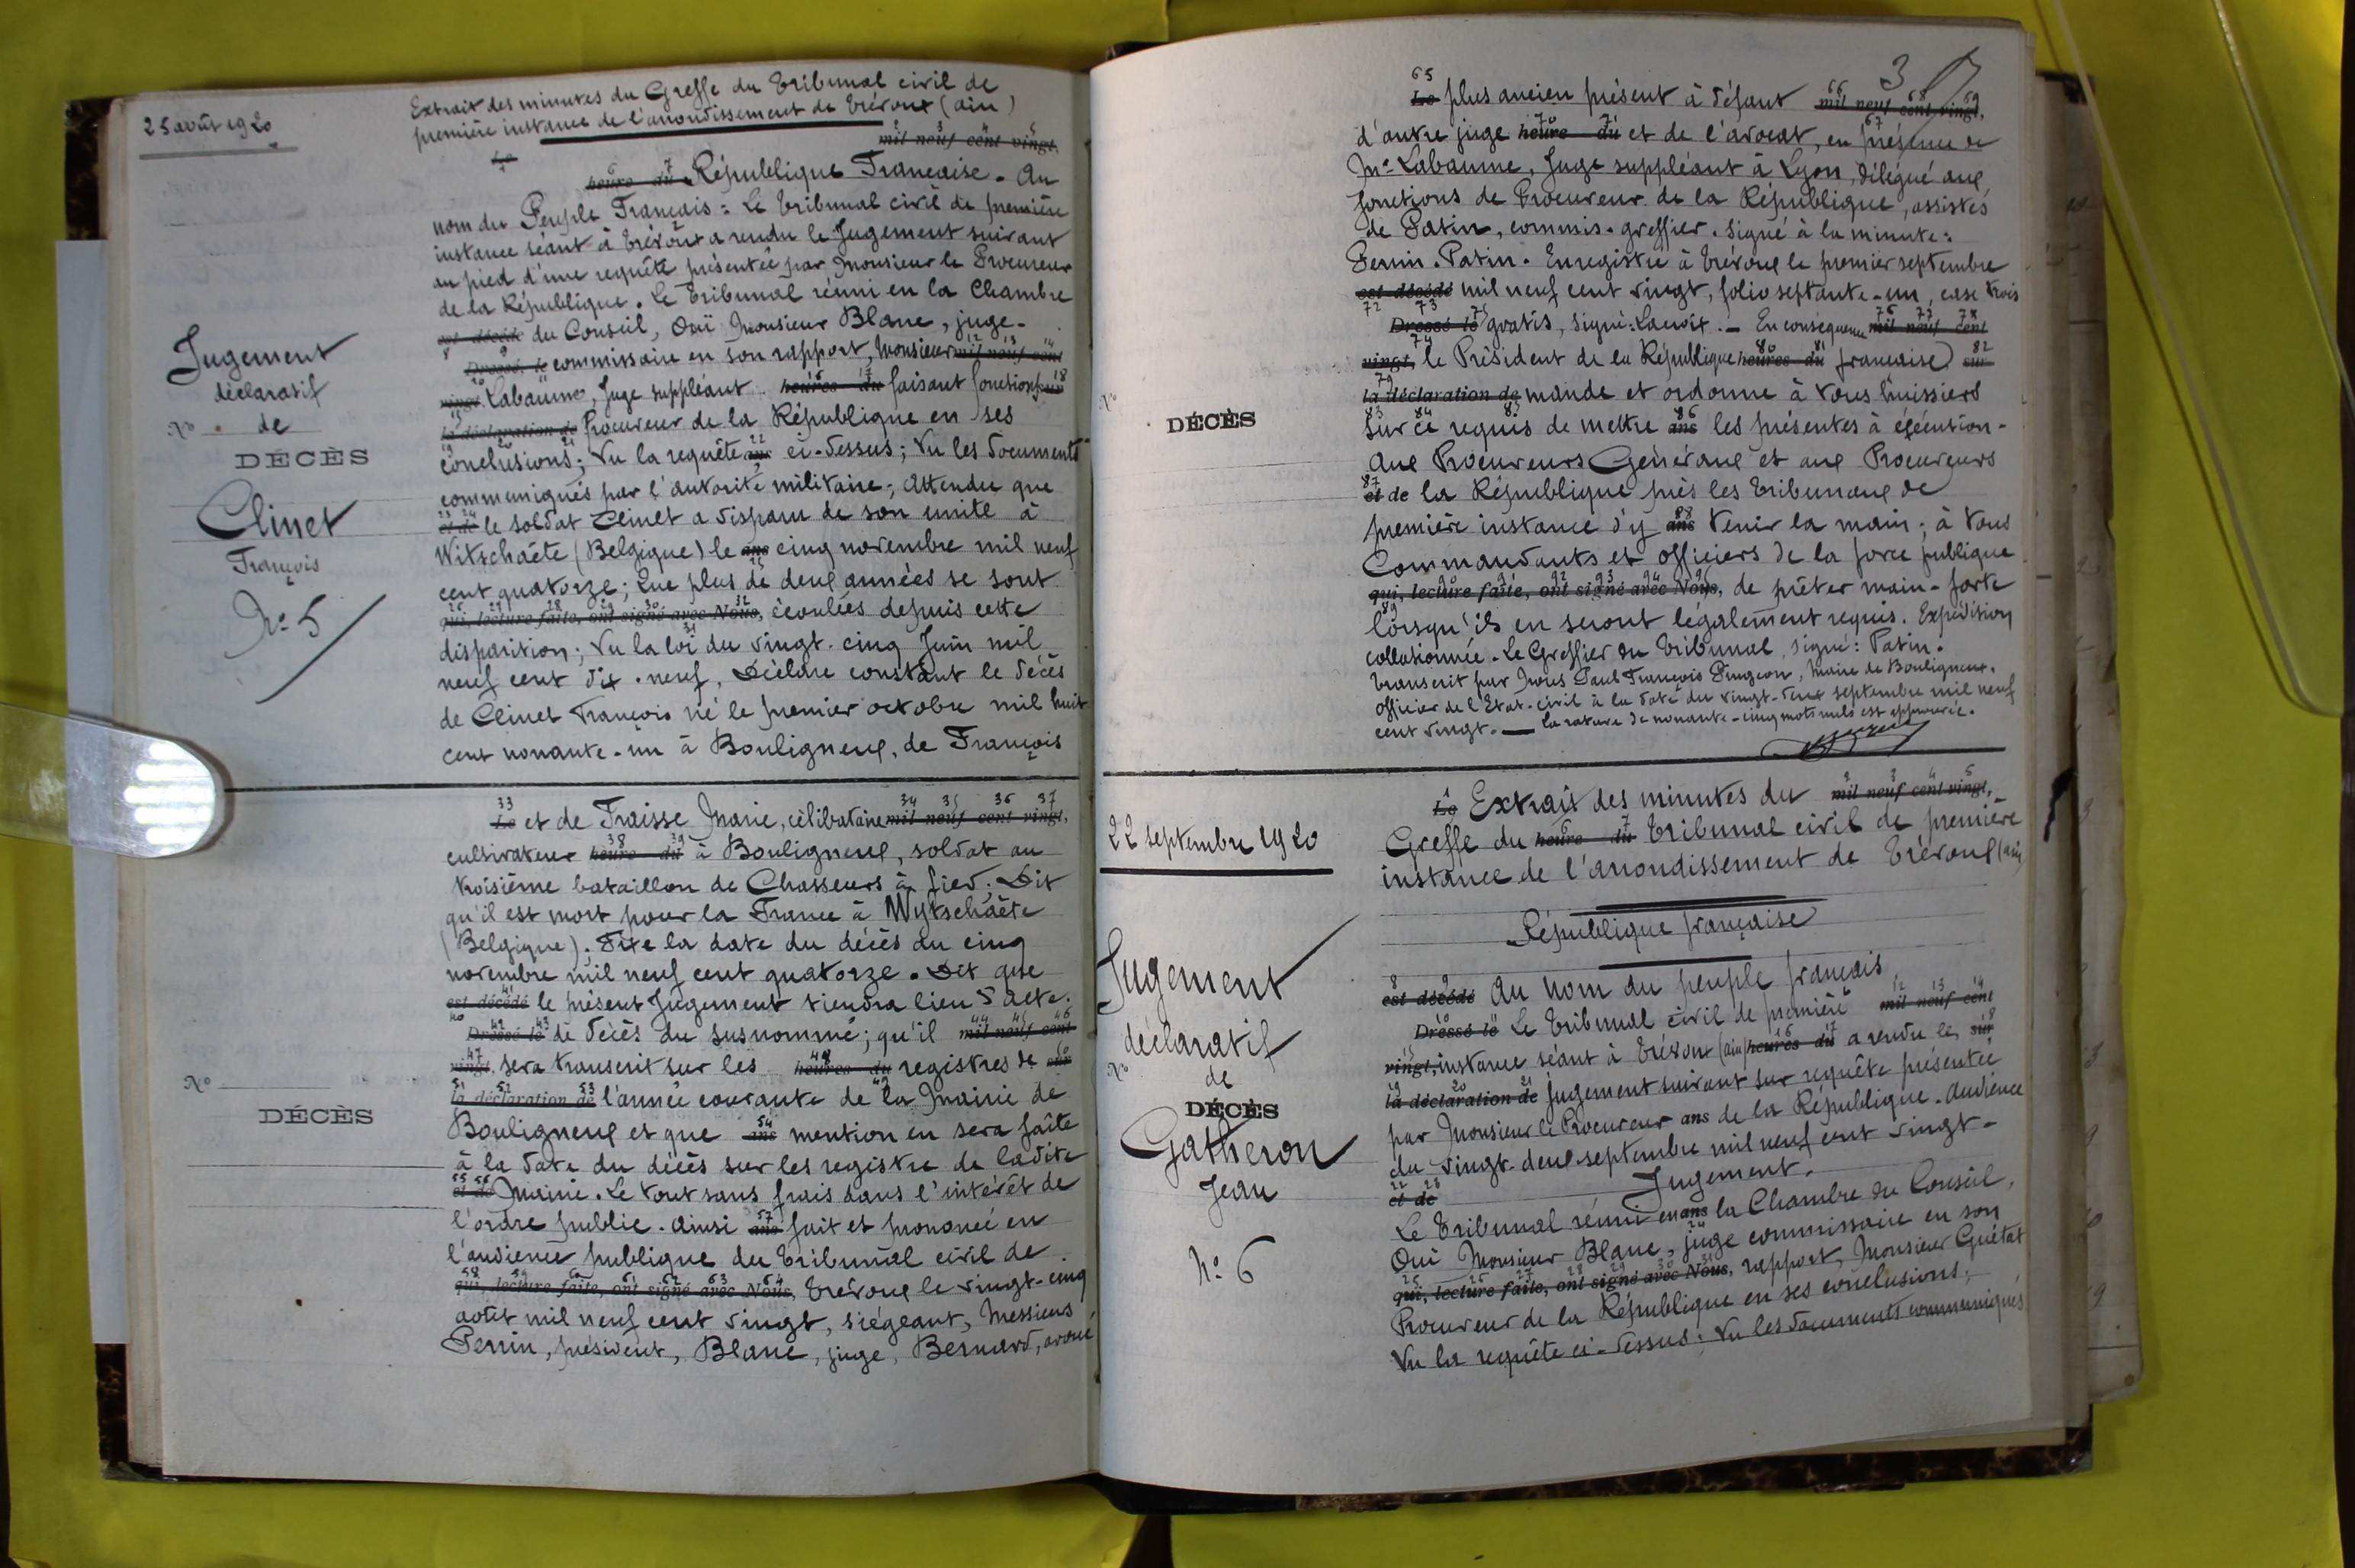 25 août 1920
Extrait des minutes du Greffe du Tribunal civil de
première instance de l'arrondissement de Trévoux (ain)
Le mil neuf cent vingt,
heure du République Française. Au
nom du Peuple Français : Le Tribunal civil de première
instance séant à Trévoux a rendu le Jugement suivant
au pied d'une requête présentée par Monsieur le Procureur
de la République. Le Tribunal réuni en la Chambre
est décédé du Conseil, Ouï Monsieur Blanc, juge-
Dressé le commissaire en son rapport, Monsieur mil neuf cent
vingt, Labaume, Juge suppléant heures du faisant fonctions sur
la déclaration de Procureur de la République en ses
conclusions ; Vu la requête ans ci-dessus ; Vu les documents
communiqués par l'autorité militaire ; Attendu que
et de le soldat Clinet a disparu de son unité à
Witschaëte (Belgique) le ans cinq novembre mil neuf
cent quatorze ; Que plus de deux années se sont
qui, lecture faite, ont signé avec Nous, écoulées depuis cette
disparition ; Vu la loi du vingt-cinq Juin mil
neuf cent dix-neuf, Déclare constant le décès
de Clinet François né le premier octobre mil huit
cent nonante-un à Bouligneux, de François
Jugement
déclaratif
No de
DÉCÈS
Clinet
François
No 5
Le et de Fraisse Marie, célibataire mil neuf cent vingt,
cultivateur heure du à Bouligneux, soldat au
troisième bataillon de Chasseurs à pied ; Dit
qu'il est mort pour la France à Wytschaëte
(Belgique) ; Fixe la date du décès du cinq
novembre mil neuf cent quatorze. Dit que
est décédé le présent Jugement tiendra lieu d'acte.
Dressé le de décès du susnommé ; qu'il mil neuf cent
vingt, sera transcrit sur les heures du registres de sur
la déclaration de l'année courante de la Mairie de
Bouligneux et que ans mention en sera faîte
à la date du décès sur les registre de ladite
et de Mairie. Le tout sans frais dans l'intérêt de
l'ordre public. Ainsi ans fait et prononcé en
l'audience publique du Tribunal civil de
qui, lecture faite, ont signé avec Nous, Trévoux le vingt-cinq
août mil neuf cent vingt, siégeant, Messieurs
Perrin, président, Blanc, juge, Bernard, avoué
No
DÉCÈS
3
Le plus ancien présent à défaut mil neuf cent vingt,
d'autre juge heure du et de l'avocat, en présence de
Mr Labaume, Juge suppléant à Lyon, délégué aux
fonctions de Procureur de la République, assistés
de Patin, commis-greffier. Signé à la minute :
Perrin. Patin. Enregistré à Trévoux le premier septembre
est décédé mil neuf cent vingt, folio septante-un, case trois
Dressé le gratis, signé : Lacroix. — En conséquence mil neuf cent
vingt, le Président de la République heures du française sur
la déclaration de mande et ordonne à tous huissiers
sur ce requis de mettre ans les présentes à éxécution-
Aux Procureurs Généraux et aux Procureurs
et de la République près les Tribunaux de
première instance d'y ans tenir la main ; à tous
Commandants et officiers de la force publique
qui, lecture faite, ont signé avec Nous, de prêter main-forte
lorsqu'ils en seront légalement requis. Expédition
collationnée. Le Greffier du Tribunal, signé : Patin.
Transcrit par Nous Paul François Pingeon, Maire de Bouligneux.
officier de l'Etat-civil à la date du vingt-deux septembre mil neuf
cent vingt. — La rature de nonante-cinq mots nuls est approuvée.
No
DÉCÈS
22 septembre 1920
Le Extrait des minutes du mil neuf cent vingt,
Greffe du heure du Tribunal civil de première
instance de l'arrondissement de Trévoux (ain)
République française
est décédé Au nom du peuple français
Dressé le Le Tribunal civil de première mil neuf cent
vingt, instance séant à Trévoux (ain) heures du a rendu le sur
la déclaration de Jugement suivant sur requête présentée
par Monsieur le Procureur ans de la République. Audience
du vingt-deux septembre mil neuf cent vingt-
et de Jugement.
Le Tribunal réuni en ans la Chambre du Conseil,
Oui Monsieur Blanc, juge commissaire en son
qui, lecture faite, ont signé avec Nous, rapport, Monsieur Guétat
Procureur de la République en ses conclusions ;
Vu la requête ci-dessus : Vu les documents communiqués
Jugement
déclaratif
No de
DÉCÈS
Gatheron
Jean
No 6